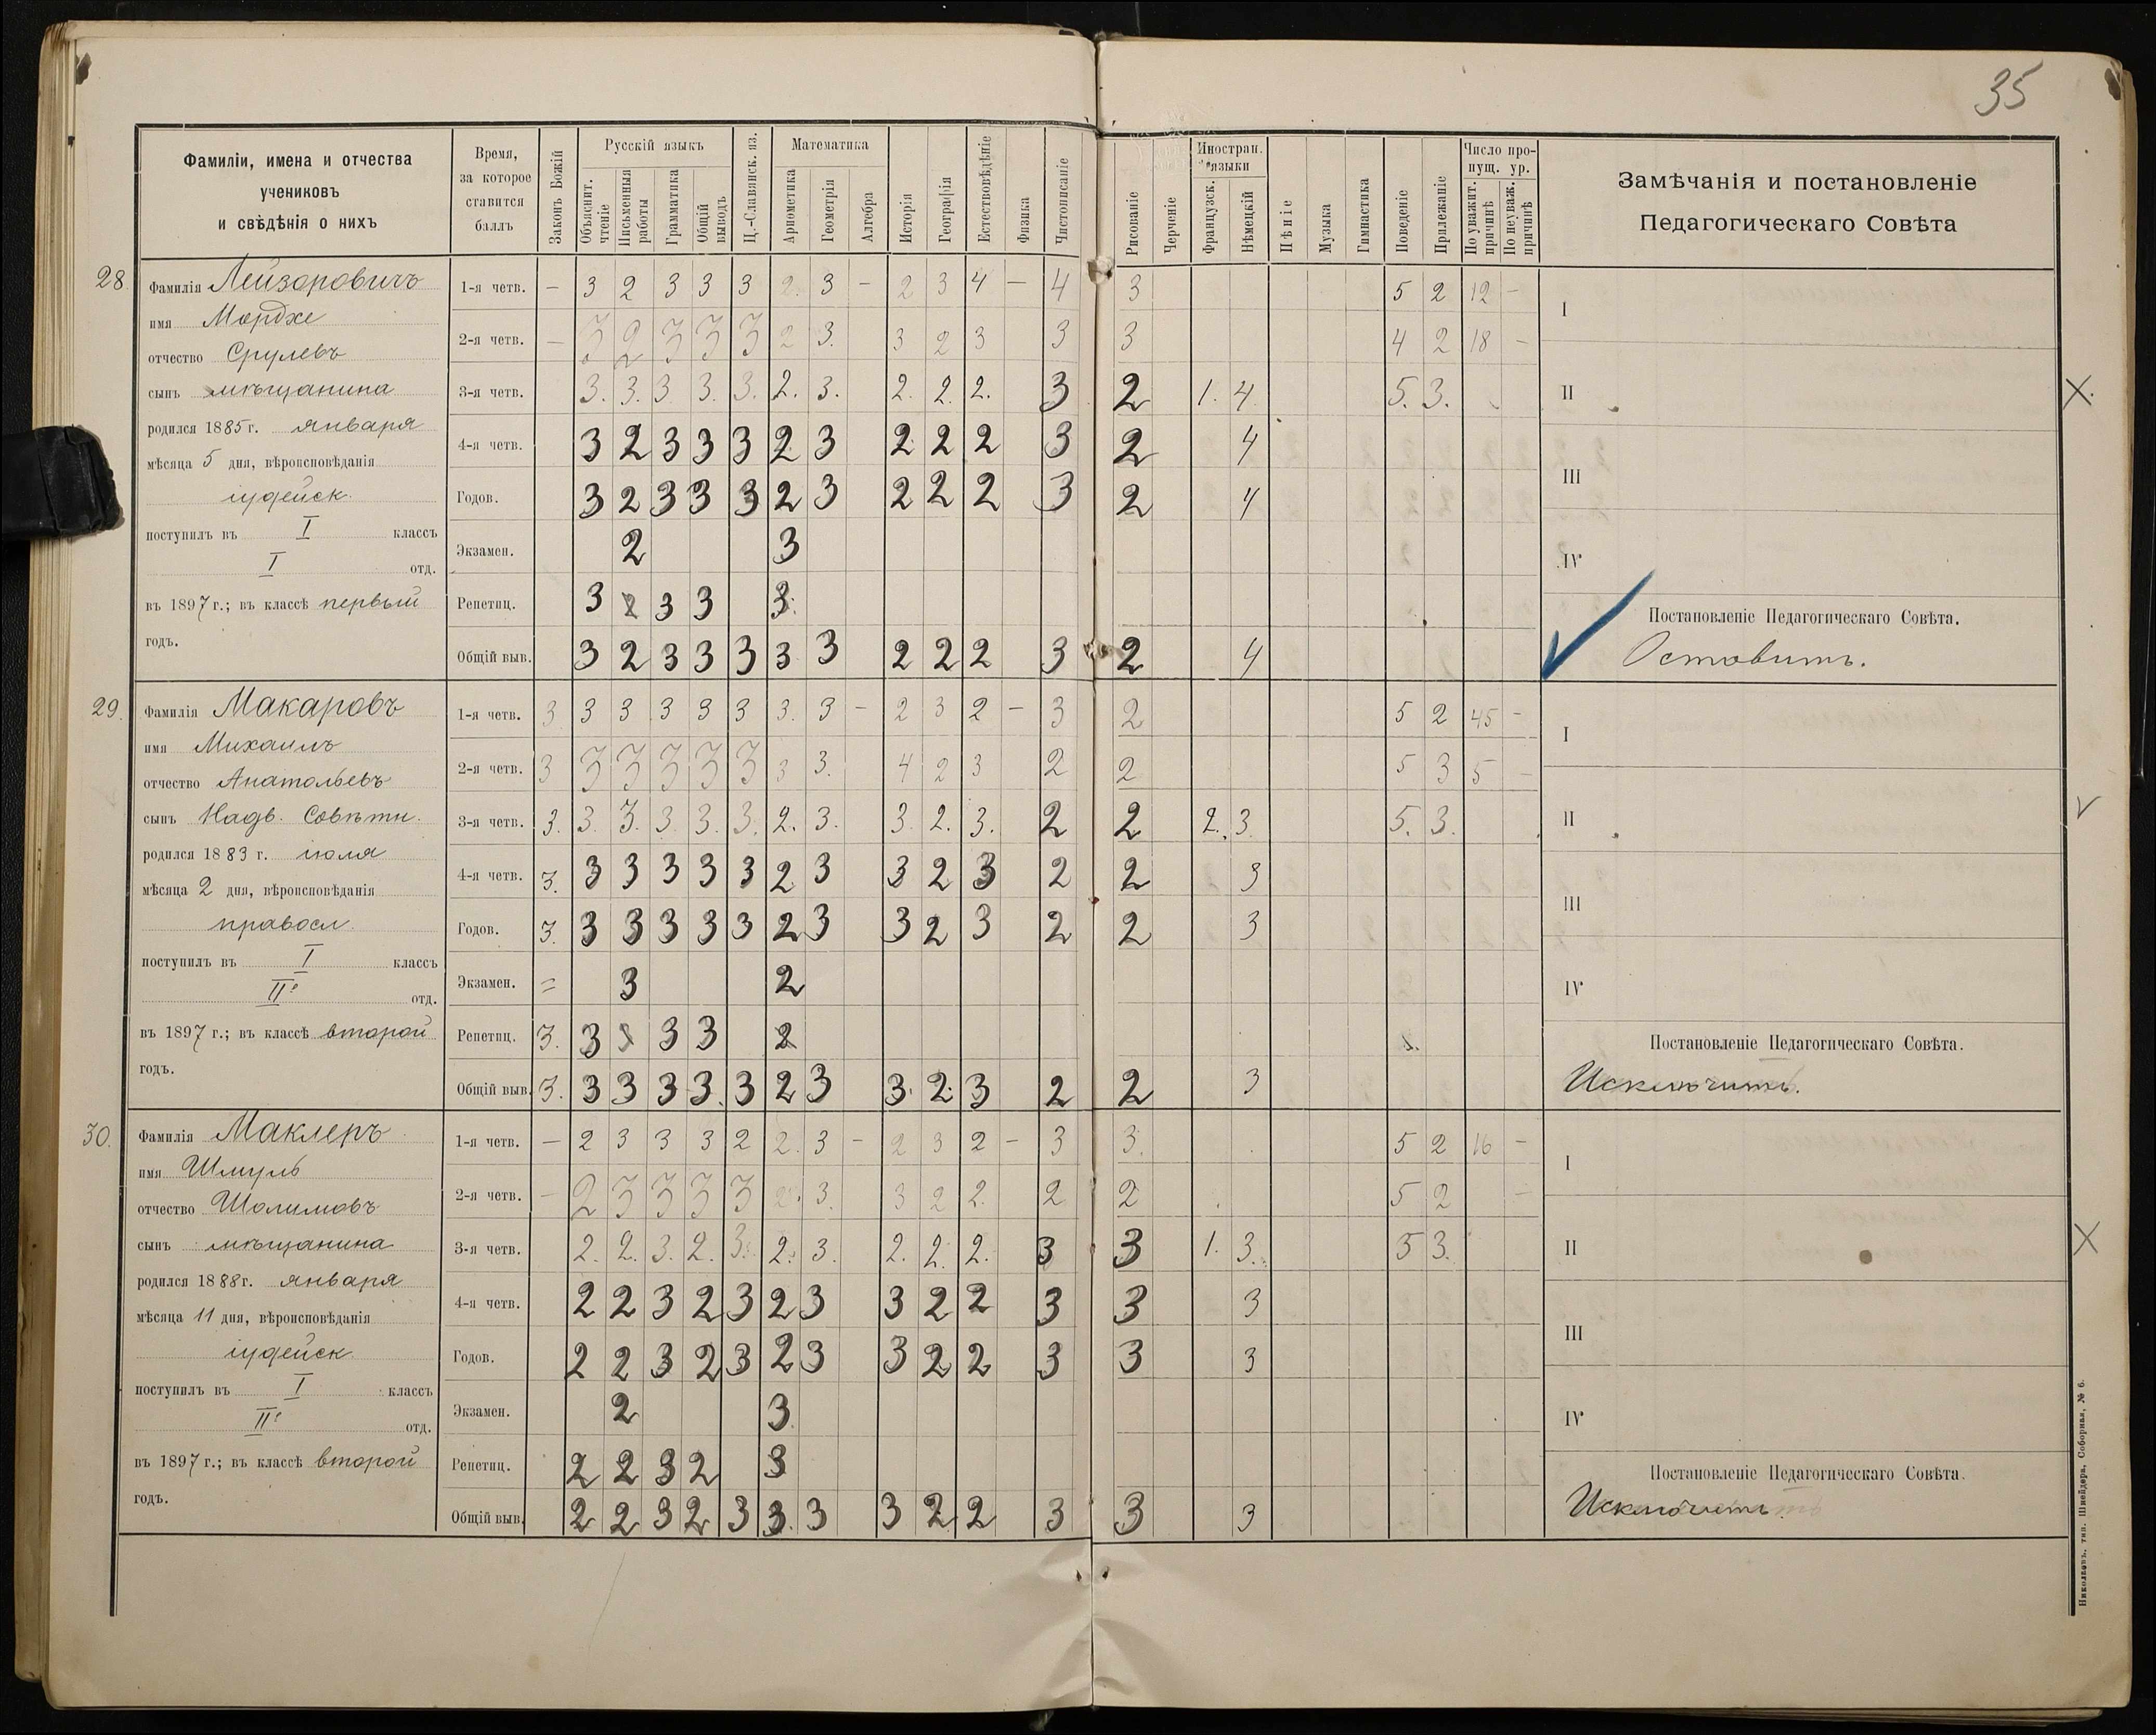 35
Фамиліи, имена и отчества учениковъ и свѣдѣнія о нихъ
Время, за которое ставится баллъ
Законъ Божій
Русскій языкъ
Объяснит. чтеніе
Письменныя работы
Грамматика
Общій выводъ
Ц.-Славянск. яз.
Математика
Ариѳметика
Геометрія
Алгебра
Исторія
Географія
Естествовѣдѣніе
Физика
Чистописаніе
Рисованіе
Черченіе
Иностран. языки
Французск.
Нѣмецкій
Пѣніе
Музыка
Гимнастика
Поведеніе
Прилежаніе
Число пропущ. ур.
По уважит. причинѣ
По неуваж. причинѣ
Замѣчанія и постановленіе
Педагогическаго Совѣта
28.
Фамилія Лейзоровичъ
имя Мордхе
отчество Срулевъ
сынъ мѣщанина
родился 1885 г. января
мѣсяца 5 дня, вѣроисповѣданія
іудейск.
поступилъ въ I классъ
I отд.
въ 1897 г.; въ классѣ первый
годъ.
1-я четв. — 3 2 3 3 3 2. 3 — 2 3 4 — 4 3 5 2 12 —
2-я четв. — 3 2 3 3 3 2 3. 3 2 3 3 3 4 2 18 —
3-я четв. 3. 3. 3 3. 3. 2. 3. 2. 2. 2. 3 2 1. 4 5. 3.
4-я четв. 3 2 3 3 3 2 3 2 2 2 3 2 4
Годов. 3 2 3 3 3 2 3 2 2 2 3 2 4
Экзамен. 2 3
Репетиц. 3 2 3 3 3.
Общій выв. 3 2 3 3 3 3 3 2 2 2 3 2 4
I
II
III
IV
Постановленіе Педагогическаго Совѣта.
Оставить.
29.
Фамилія Макаровъ
имя Михаилъ
отчество Анатольевъ
сынъ Надв. Совѣтн.
родился 1883 г. іюля
мѣсяца 2 дня, вѣроисповѣданія
правосл.
поступилъ въ I классъ
IIе отд.
въ 1897 г.; въ классѣ второй
годъ.
1-я четв. 3 3 3 3 3 3 3. 3 — 2 3 2 — 3 2 5 2 45 —
2-я четв. 3 3 3 3 3 3 3 3. 4 2 3 2 2 5 3 5 —
3-я четв. 3. 3. 3. 3. 3. 3. 2. 3. 3. 2. 3. 2 2 2. 3. 5. 3.
4-я четв. 3. 3 3 3 3 3 2 3 3 2 3 2 2 3
Годов. 3. 3 3 3 3 3 2 3 3 2 3 2 2 3
Экзамен. = 3 2
Репетиц. 3. 3 3 3 2
Общій выв. 3. 3 3 3 3. 3 2 3 3. 2. 3 2 2 3
I
II
III
IV
Постановленіе Педагогическаго Совѣта.
Исключить.
30.
Фамилія Маклеръ
имя Шмуль
отчество Шолимовъ
сынъ мѣщанина
родился 1888 г. января
мѣсяца 11 дня, вѣроисповѣданія
іудейск.
поступилъ въ I классъ
IIе отд.
въ 1897 г.; въ классѣ второй
годъ.
1-я четв. — 2 3 3 3 2 2. 3 — 2 3 2 — 3 3. 5 2 16 —
2-я четв. — 2 3 3 3 3 3. 3 2 2. 2 2 5 2 —
3-я четв. 2. 2. 3. 2. 3. 2. 3. 2. 2. 2. 3 3 1. 3. 5 3.
4-я четв. 2 2 3 2 3 2 3 3 2 2 3 3 3
Годов. 2 2 3 2 3 2 3 3 2 2 3 3 3
Экзамен. 2 3.
Репетиц. 2 2 3 2 3
Общій выв. 2 2 3 2 3 3. 3 3 2 2 3 3 3
I
II
III
IV
Постановленіе Педагогическаго Совѣта.
Исключить.
Николаевъ, тип. Шнейдера, Соборная, № 6.